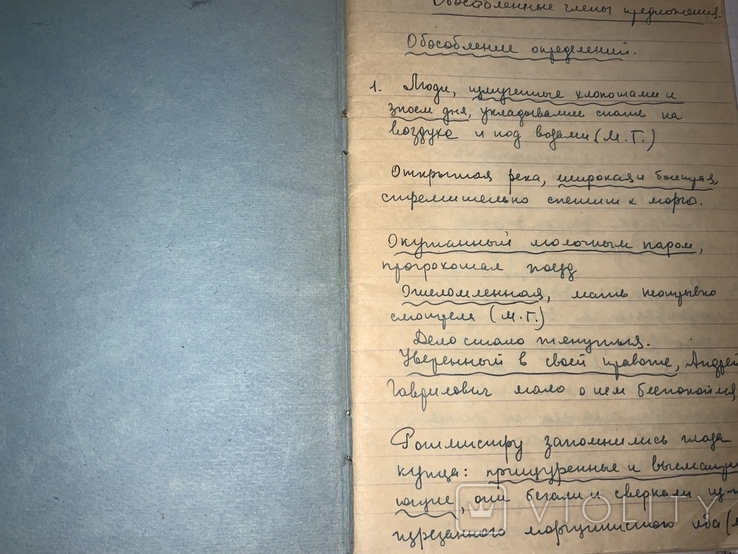 Обособленные члены предложения.
Обособление определений.
1. Люди, измученные хлопотами и
зноем дня, укладывались спать на
воздухе и под возами (М.Г.)
Открытая река, широкая и быстрая,
стремительно спешит к морю.
Окутанный молочным паром,
прогрохотал поезд
Ошеломленная, мать неотрывно
смотрела (М.Г.)
Дело стало тянуться.
Уверенный в своей правоте, Андрей
Гаврилович мало о нем беспокоился
Ротмистру запомнились глаза
купца: прищуренные и высматри
ющие, они бегали и сверкали из-п
изрезанного морщинистого лба (
VIOLITY